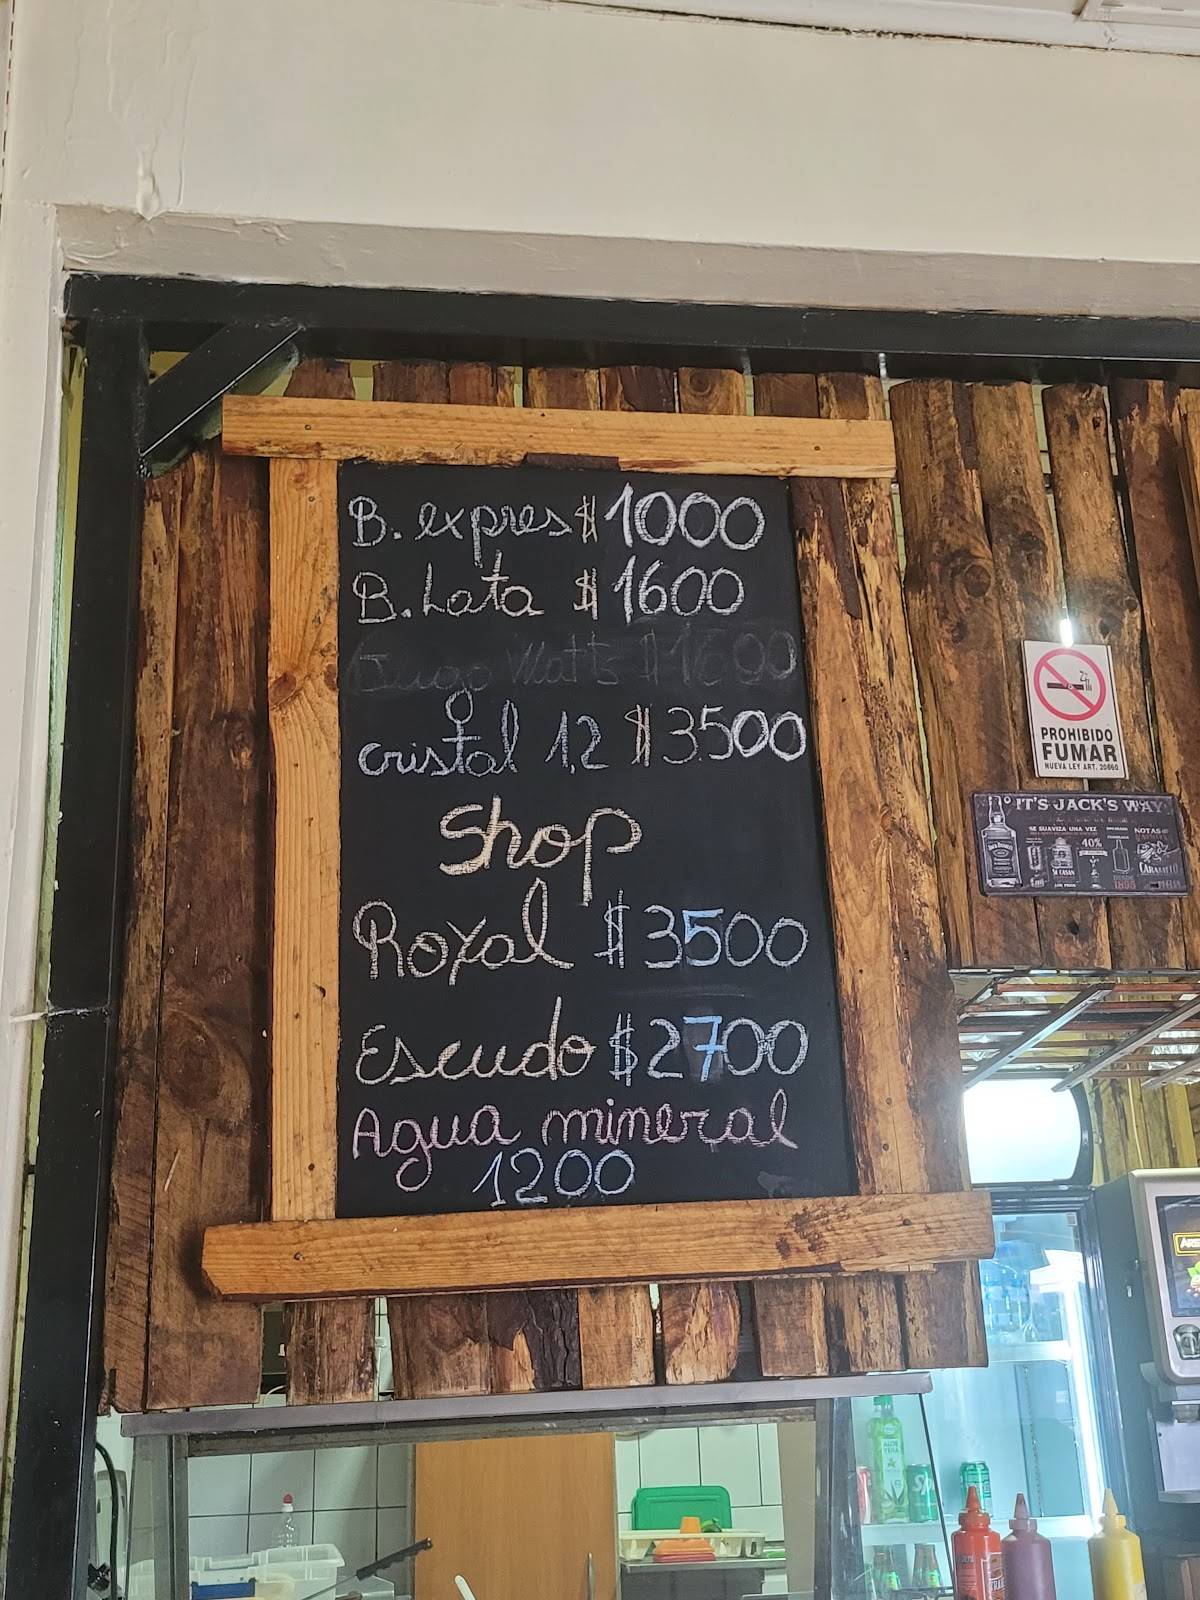 B. expres $1000
B. Lata $1600
Jugo Watt's $1600
cristal 1,2 $3.500
Shop
Royal $3500
Escudo $2700
Agua mineral
1200
PROHIBIDO
FUMAR
NUEVA LEY ART. 20660
IT'S JACK'S WAY
SE SUAVIZA UNA VEZ
40%
NOTAS
CARAMELO
SE CASAN
DESDE
1895
ALOE
VERA